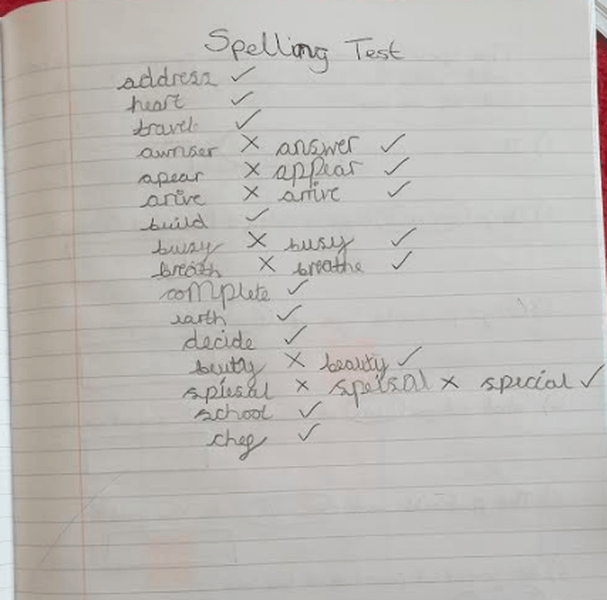 Spelling Test
address ✓
heart ✓
travel ✓
awnser × answer ✓
apear × appear ✓
arive × arrive ✓
build ✓
buzy × busy ✓
breath × breathe ✓
complete ✓
earth ✓
decide ✓
beutty × beauty ✓
spiesal × speisal × special ✓
school ✓
chef ✓